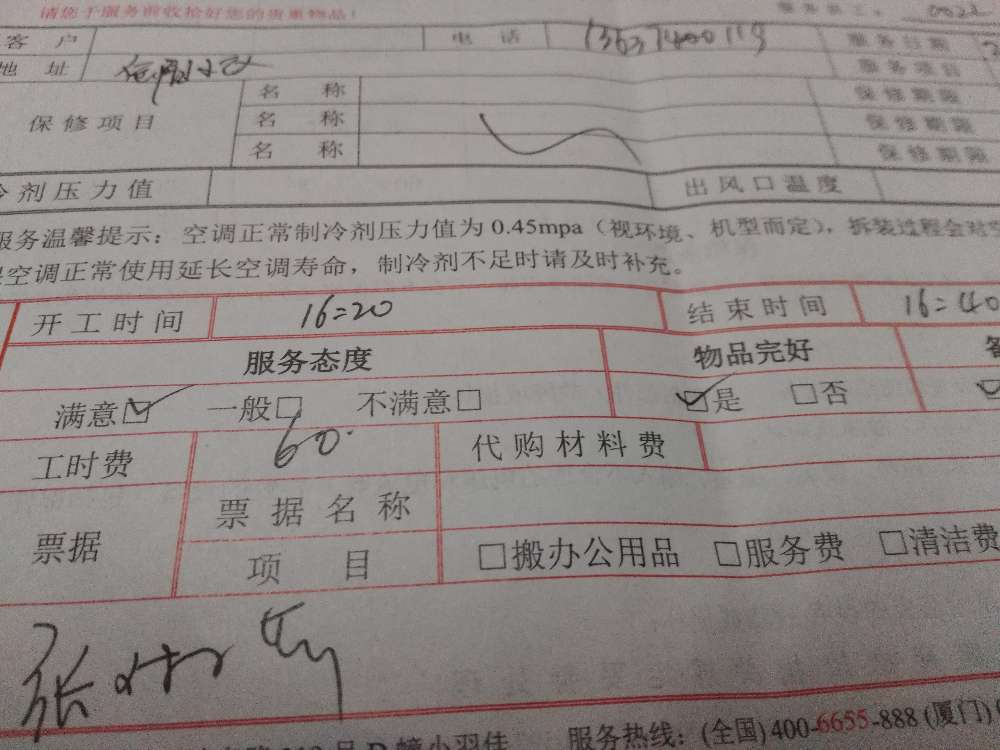 请您于服务前收拾好您的贵重物品!
客 户 电 话 服务日期
地 址 服务项目
保修项目 名 称 保修期限
名 称 保修期限
名 称 保修期限
剂压力值 出风口温度
服务温馨提示：空调正常制冷剂压力值为 0.45mpa（视环境、机型而定），拆装过程会对
空调正常使用延长空调寿命，制冷剂不足时请及时补充。
开工时间 16=20 结束时间 16=40
服务态度 物品完好
满意☑ 一般□ 不满意□ ☑是 □否
工时费 60. 代购材料费
票据 票据名称
项 目 □搬办公用品 □服务费 □清洁费
张
服务热线：(全国)400-6655-888(厦门)